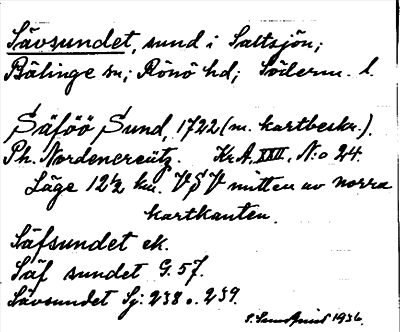 Sävsundet, sund i Saltsjön;
Bälinge sn; Rönö hd; Söderm. l.
Säföö Sund, 1722 (m. kartbeskr.).
Ph. Nordenereütz. Kr.A. XXII, N:o 24.
Läge 12½ km. VSV mitten av norra
kartkanten.
Säfsundet ek.
Säf sundet G. 57.
Sävsundet Sj: 238 o. 239.
1936.